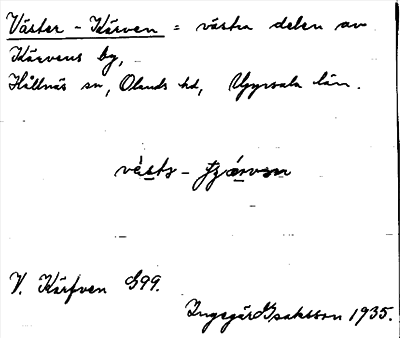 Väster-Kärven = västra delen av
Kärvens by,
Hållnäs sn, Olands hd, Uppsala län.
V. Kärfven G99.
Ingegärd Isaksson 1935.